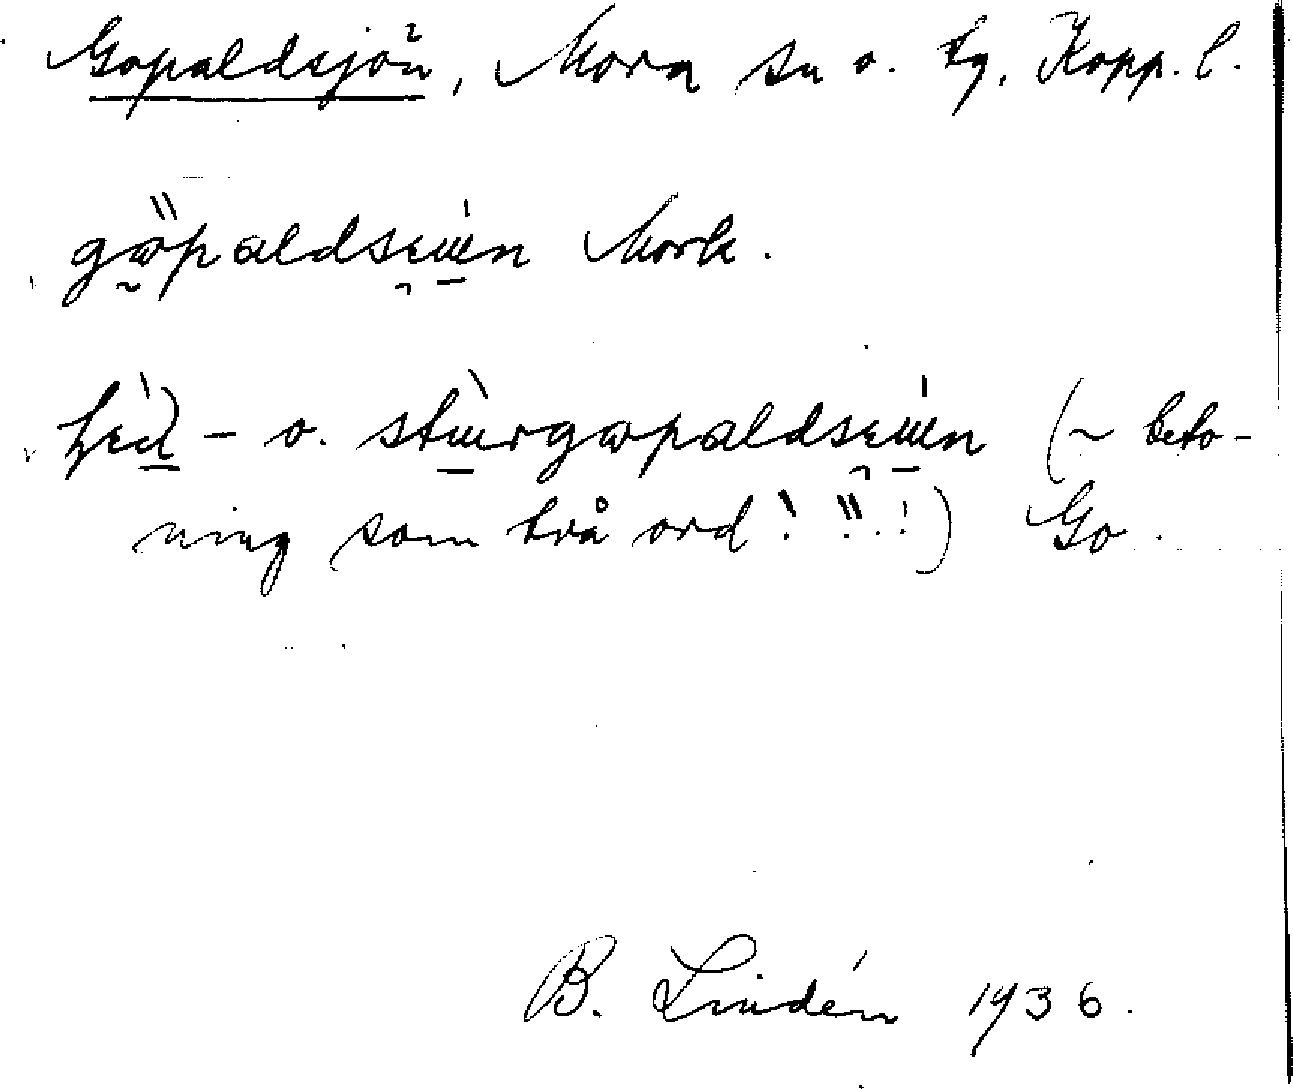 Gopaldsjön, Mora sn o. tg, Kopp. l.
gɷpaldsɛɯn Mork.
- o. stɯrgɷpaldsɛɯn (~ beto-
ning som två ord! !! !) Go.
B. Lindén 1936.